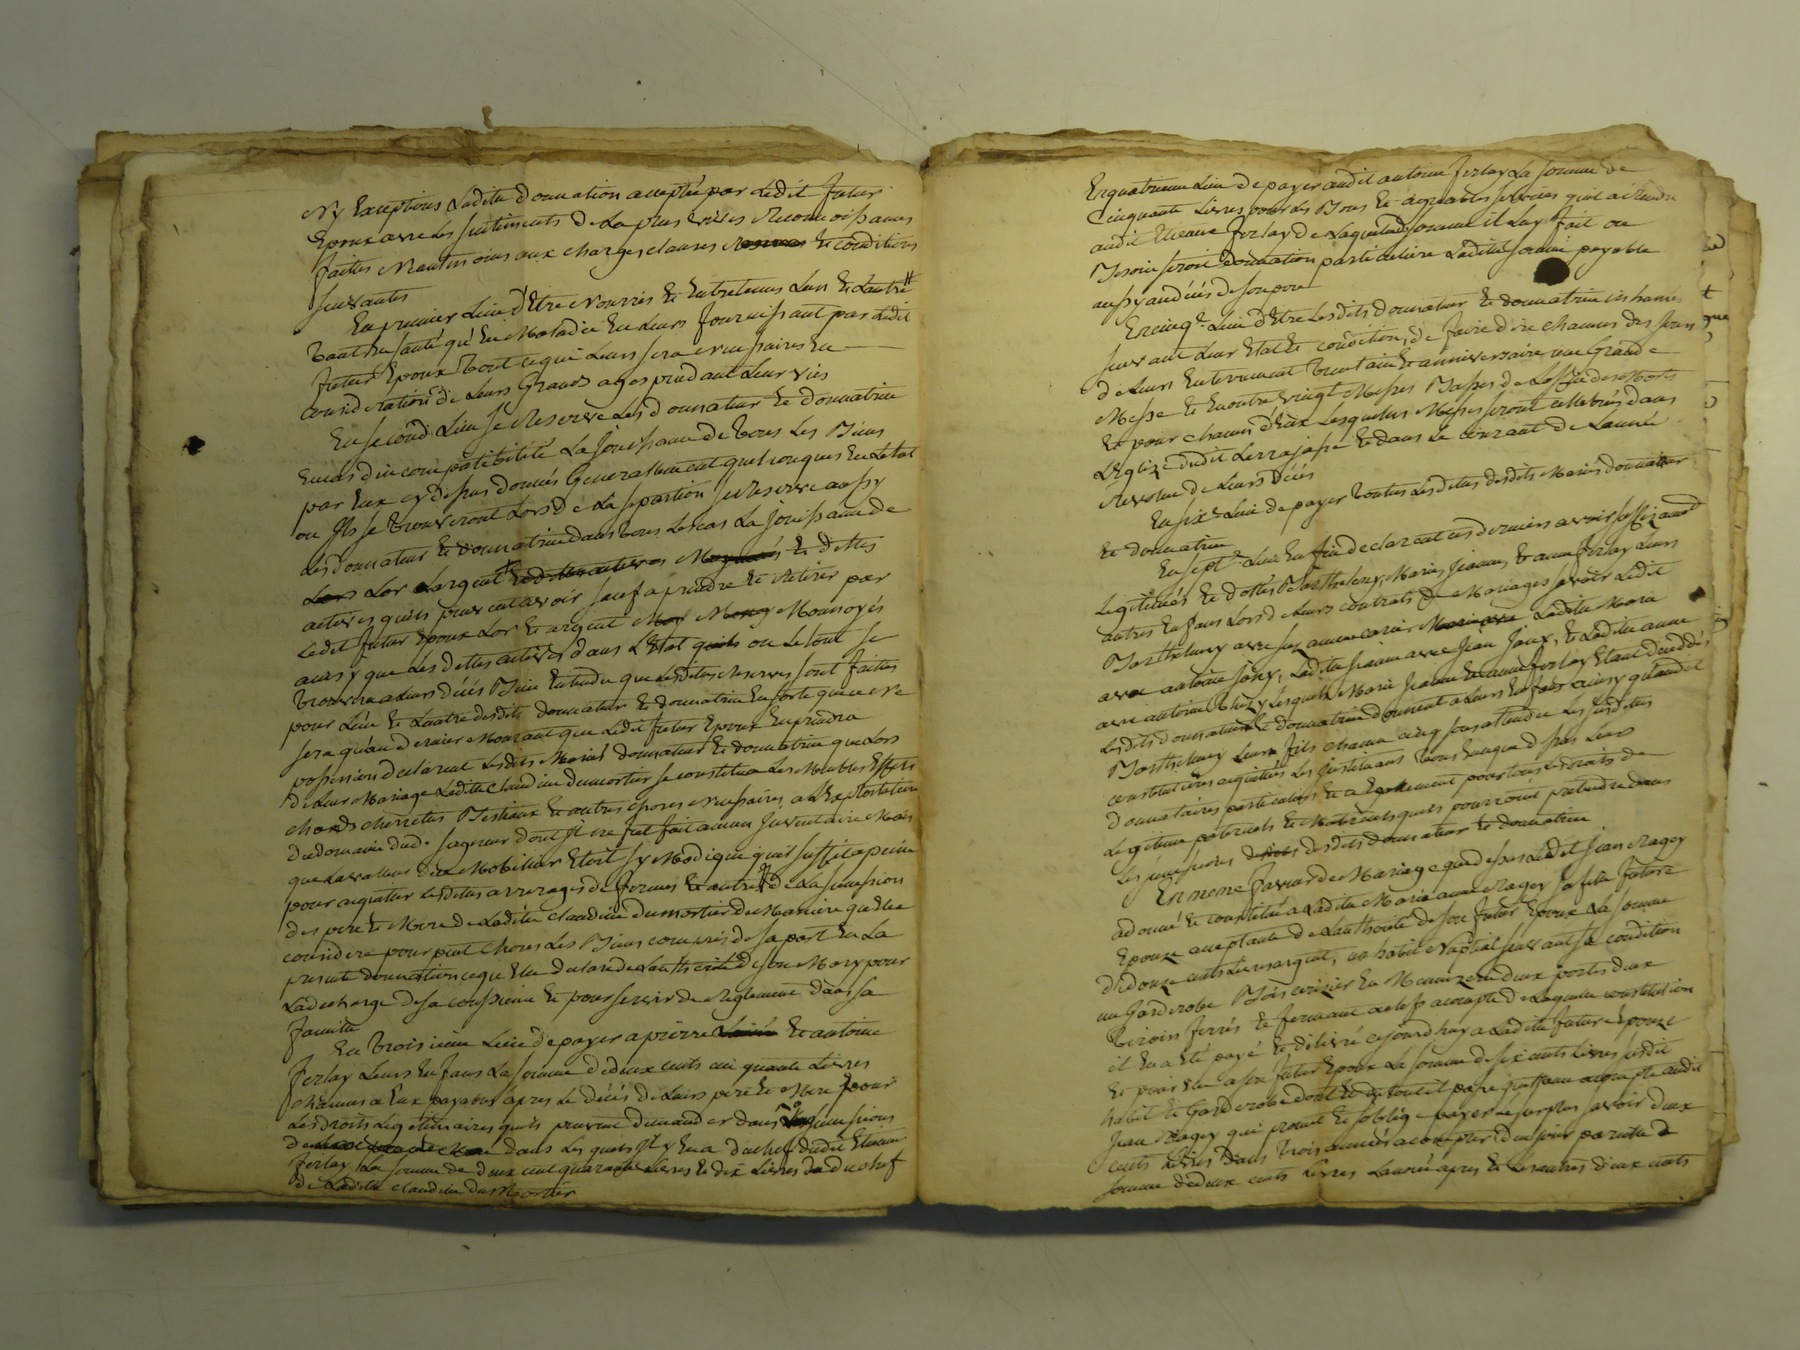 Ny Exceptions Ladite donnation acceptée par Ledit futur
Epoux avec Les sentiments de La plus vives Reconnoissances
faittes Neantmoins aux charges clauses Reserves et conditions
suivantes
En premier Lieu d'Etre Nourris et Entretenus L'un et L'autre
tant En santé qu'En Maladie En Leurs fournissant par Ledit
futur Epoux tout ce qui Leurs sera Necessaires En
consideration de Leurs Grands ages pendant Leur vies
En second Lieu se Reserve Les donnateur et donnatrice
En cas d'incompatibilité La Jouissance de tous Les Biens
par Eux cy dessus donnés Generallement quelconques En L'etat
ou Ils se trouveront Lors de La separtion se Reserve aussy
Les donnateur et donnatrice dans tous Les cas La Jouissance de
L'or L'argent et dettes
actives qu'ils peuvent avoir sauf a prendre et Retirer par
Ledit futur Epoux L'or et argent Monoyés
ainsy que Les dettes actives dans L'Etat ou Le tout se
trouvera a Leurs décés Bien Entendu que Lesdites Reserves sont faites
pour L'un et L'autre desdits donnateur et donnatrice En sorte que ce ne
sera qu'au dernier Mourant que Ledit futur Epoux En prendra
possession declarent Lesdits Mariés donnateur et donnatrice que Lors
de Leur Mariage Laditte Claudine dumortier se constitua Les Meubles Effets
chards cherrettes Bestiaux et autres choses Necessaires a L'Exploitation
du domaine dud. dont Il ne fut fait aucun Inventaire Mais
que La valleur du Mobilier Etoit sy Modique qu'il suffit a peine
pour aquitter Lesdittes arrerages de fermes et autres de La succession
des pere et Mere de Laditte Claudine Dumortier de Maniere qu'Elle
considere pour peut choses Les Biens compris de sa part En La
presente donnation ce qu'Elle declare de L'authorité de son Mary pour
La decharge de sa conscience et pour servir de Reglement dans sa
famille
En troisieme Lieu de payer a pierre et antoine
Ferlay Leurs Enfans La somme de deux cents cinquante Livres
chacuns a Eux payables apres Le décés de Leurs pere et Mere pour
Les droits Légétimaires qu'ils peuvent demander dans successions
dans Les quels Il y En a du chef dudit Etienne
Ferlay La somme de deux cent quarante Livres et dix Livres du chef
de Laditte Claudine Dumortier
En quatrieme Lieu de payer audit antoine Ferlay La somme de
cinquante Livres pour Les Bons et agreables services qu'il a Rendu
audit Etienne Ferlay de Laquelle somme il Luy fait ou
Besoin seroit donnation particuliere Laditte somme payable
aussy au décés de son pere
En cinq.e Lieu d'Etre Lesdits donnateur et donnatrice inhumés
suivant Leur Etat et condition, de faire dire chacuns des Jours
de Leurs Enterrement trentain et anniversaire une Grande
Messe et En outre vingt Messes Basses de L'office des Morts
et pour chacun d'Eux Lesquelles Messes seront cellebrées dans
L'Eglize dudit Lerrajasse et dans Le courant de L'année
Revolue de Leurs décés
En six.e Lieu de payer toutes Les dettes desdits Mariés donnateur
et donnatrice
En sept.e Lieu Enfin declarent ces derniers avoir
Legitimés et dottés Barthelemy, Marie, Jeanne, et anne Ferlay Leurs
autres Enfans Lors de Leurs contrats de Mariages savoir Ledit
Barthelemy avec Laditte Marie
avec antoine Laditte Jeanne avec Jean et Laditte anne
avec antoine Lesquels Marie Jeanne et anne Ferlay Etant decedés
Lesdits donnateur et donnatrice donnent a Leurs Enfans ainsy qu'audit
Barthelemy Leurs fils chacun cinq sous attendu Les susdittes
constitutions aquittées Les Instituans tous En ce que dessus Leurs
donnataires particuliers et a Egallement pour tous Les droits de
Legitime paternels et Maternels qu'ils pourront pretendre dans
Les successions desdits donnateur et donnatrice
En Meme faveur de Mariage que dessus Ledit Jean Ragey
a donné et constitué a Laditte Marie anne Ragey sa fille future
Epouze acceptante de L'authorité de son futur Epoux La somme
de douze cents Livres argent, un habit Nuptial suivant sa condition
un Garderobe Bois cerizier En Menuizerie deux portes deux
tiroirs ferrés et fermant a clefs a compte de Laquelle constitution
il En a Eté payé et delivré ce jourd'huy a Laditte future Epouze
et par Elle a son futur Epoux La somme de six cents Livres Lesdit
habit et Garderobe dont
Jean Ragey qui promet et s'oblige payer Le surplus savoir deux
cents Livres dans trois années a compter de ce jour pareille
somme de deux cents Livres L'année apres et Les autres deux cents